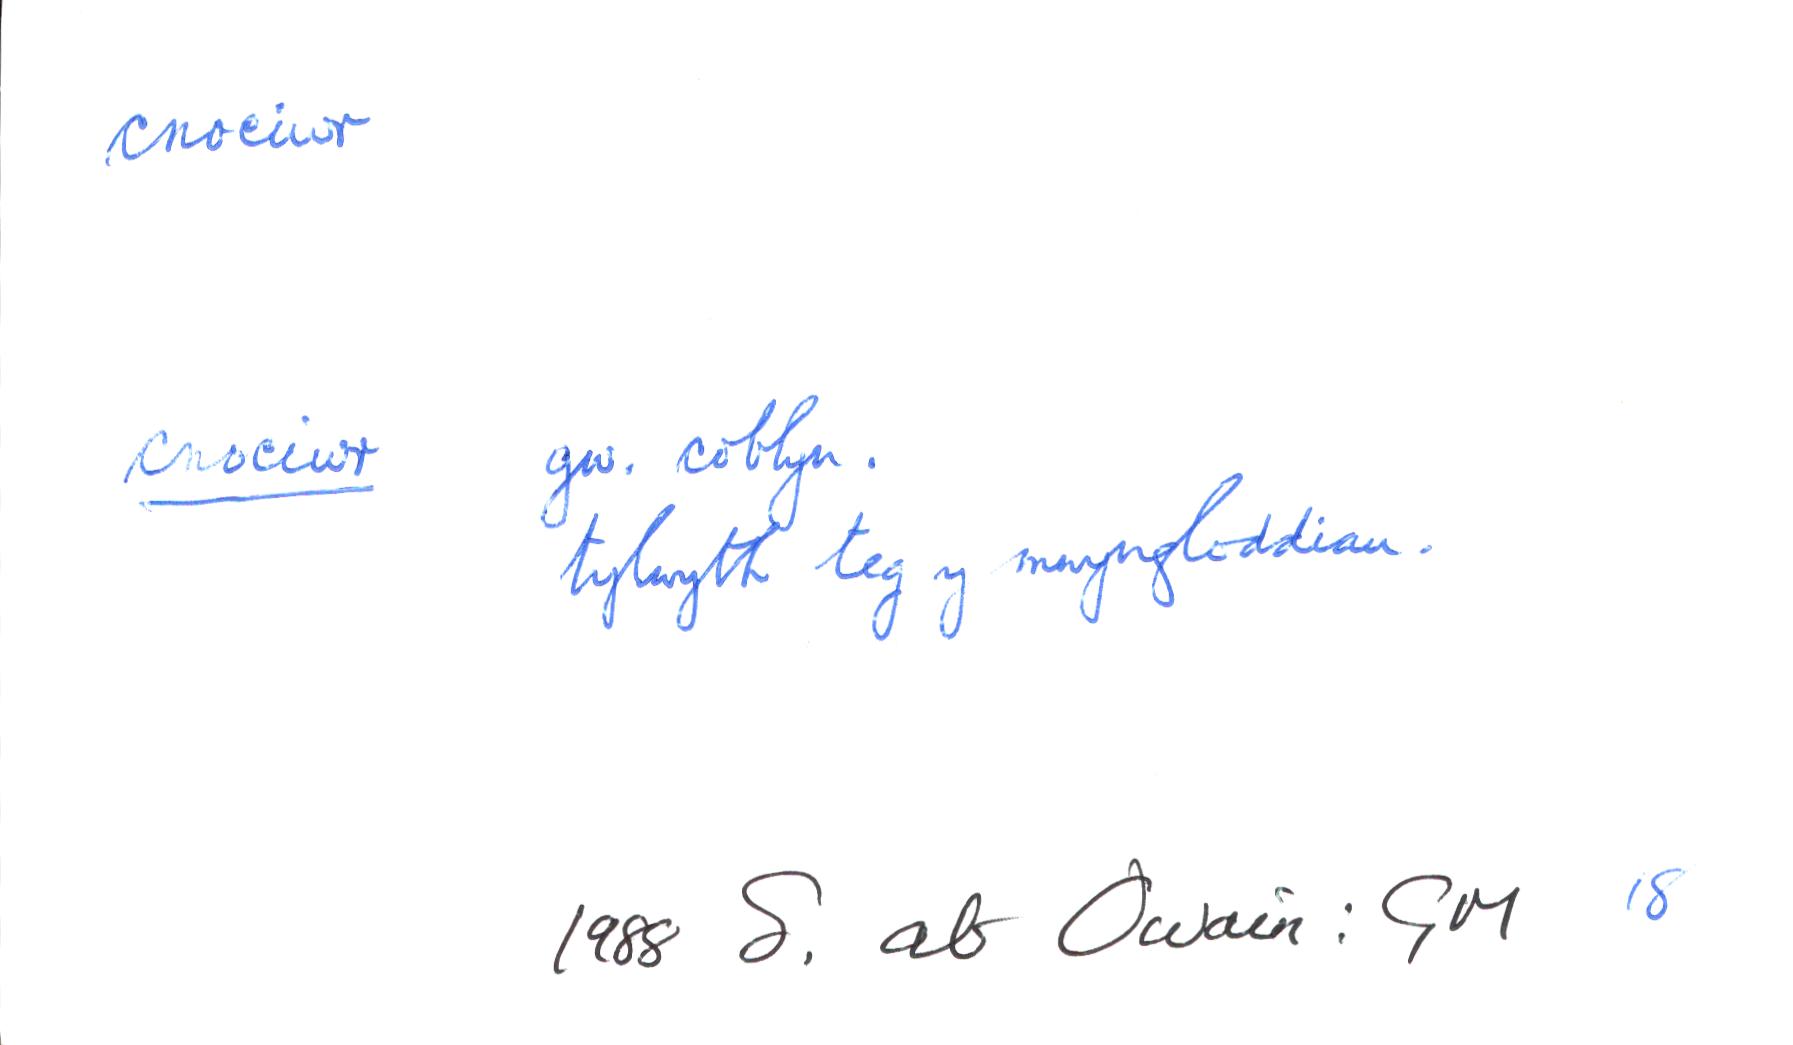 cnociwr
cnociwr gw. coblyn.
tylwyth teg y mwyngloddiau.
1988 S. ab Owain: GM 18